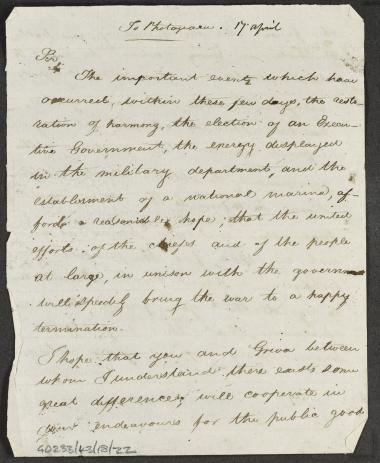 To Photomara. 17 april
Sir
The important events which have
occurred, within these few days, the resto-
ration of harmony, the election of an Execu-
tive Government, the energy desplayed
in the military department, and the
establisment of a national marine, af-
fords a reasonable hope, that the united
efforts of the cheefs and of the people
at large, in unison with the governm
will speedely bring the war to a happy
termination.
I hope that you and Griva between
whom I understand there exists some
great differences, will cooperate in
your endeavours for the public good
GD233/43/18/22